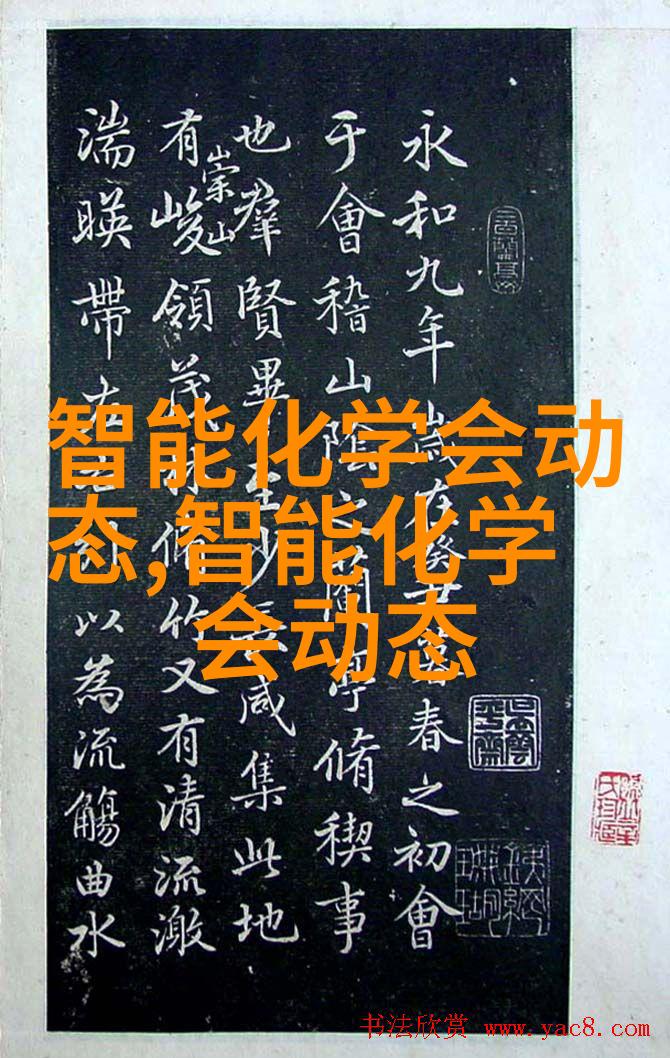 永和九年歲在癸丑暮春之初會
于會稽山陰之蘭亭脩稧事
也羣賢畢至少長咸集此地
有崇山峻領茂林脩竹又有清流激
湍暎帶左右列以為流觴曲水
智能化学会动
态,智能化学
会动态
书法欣赏 www.yac8.com